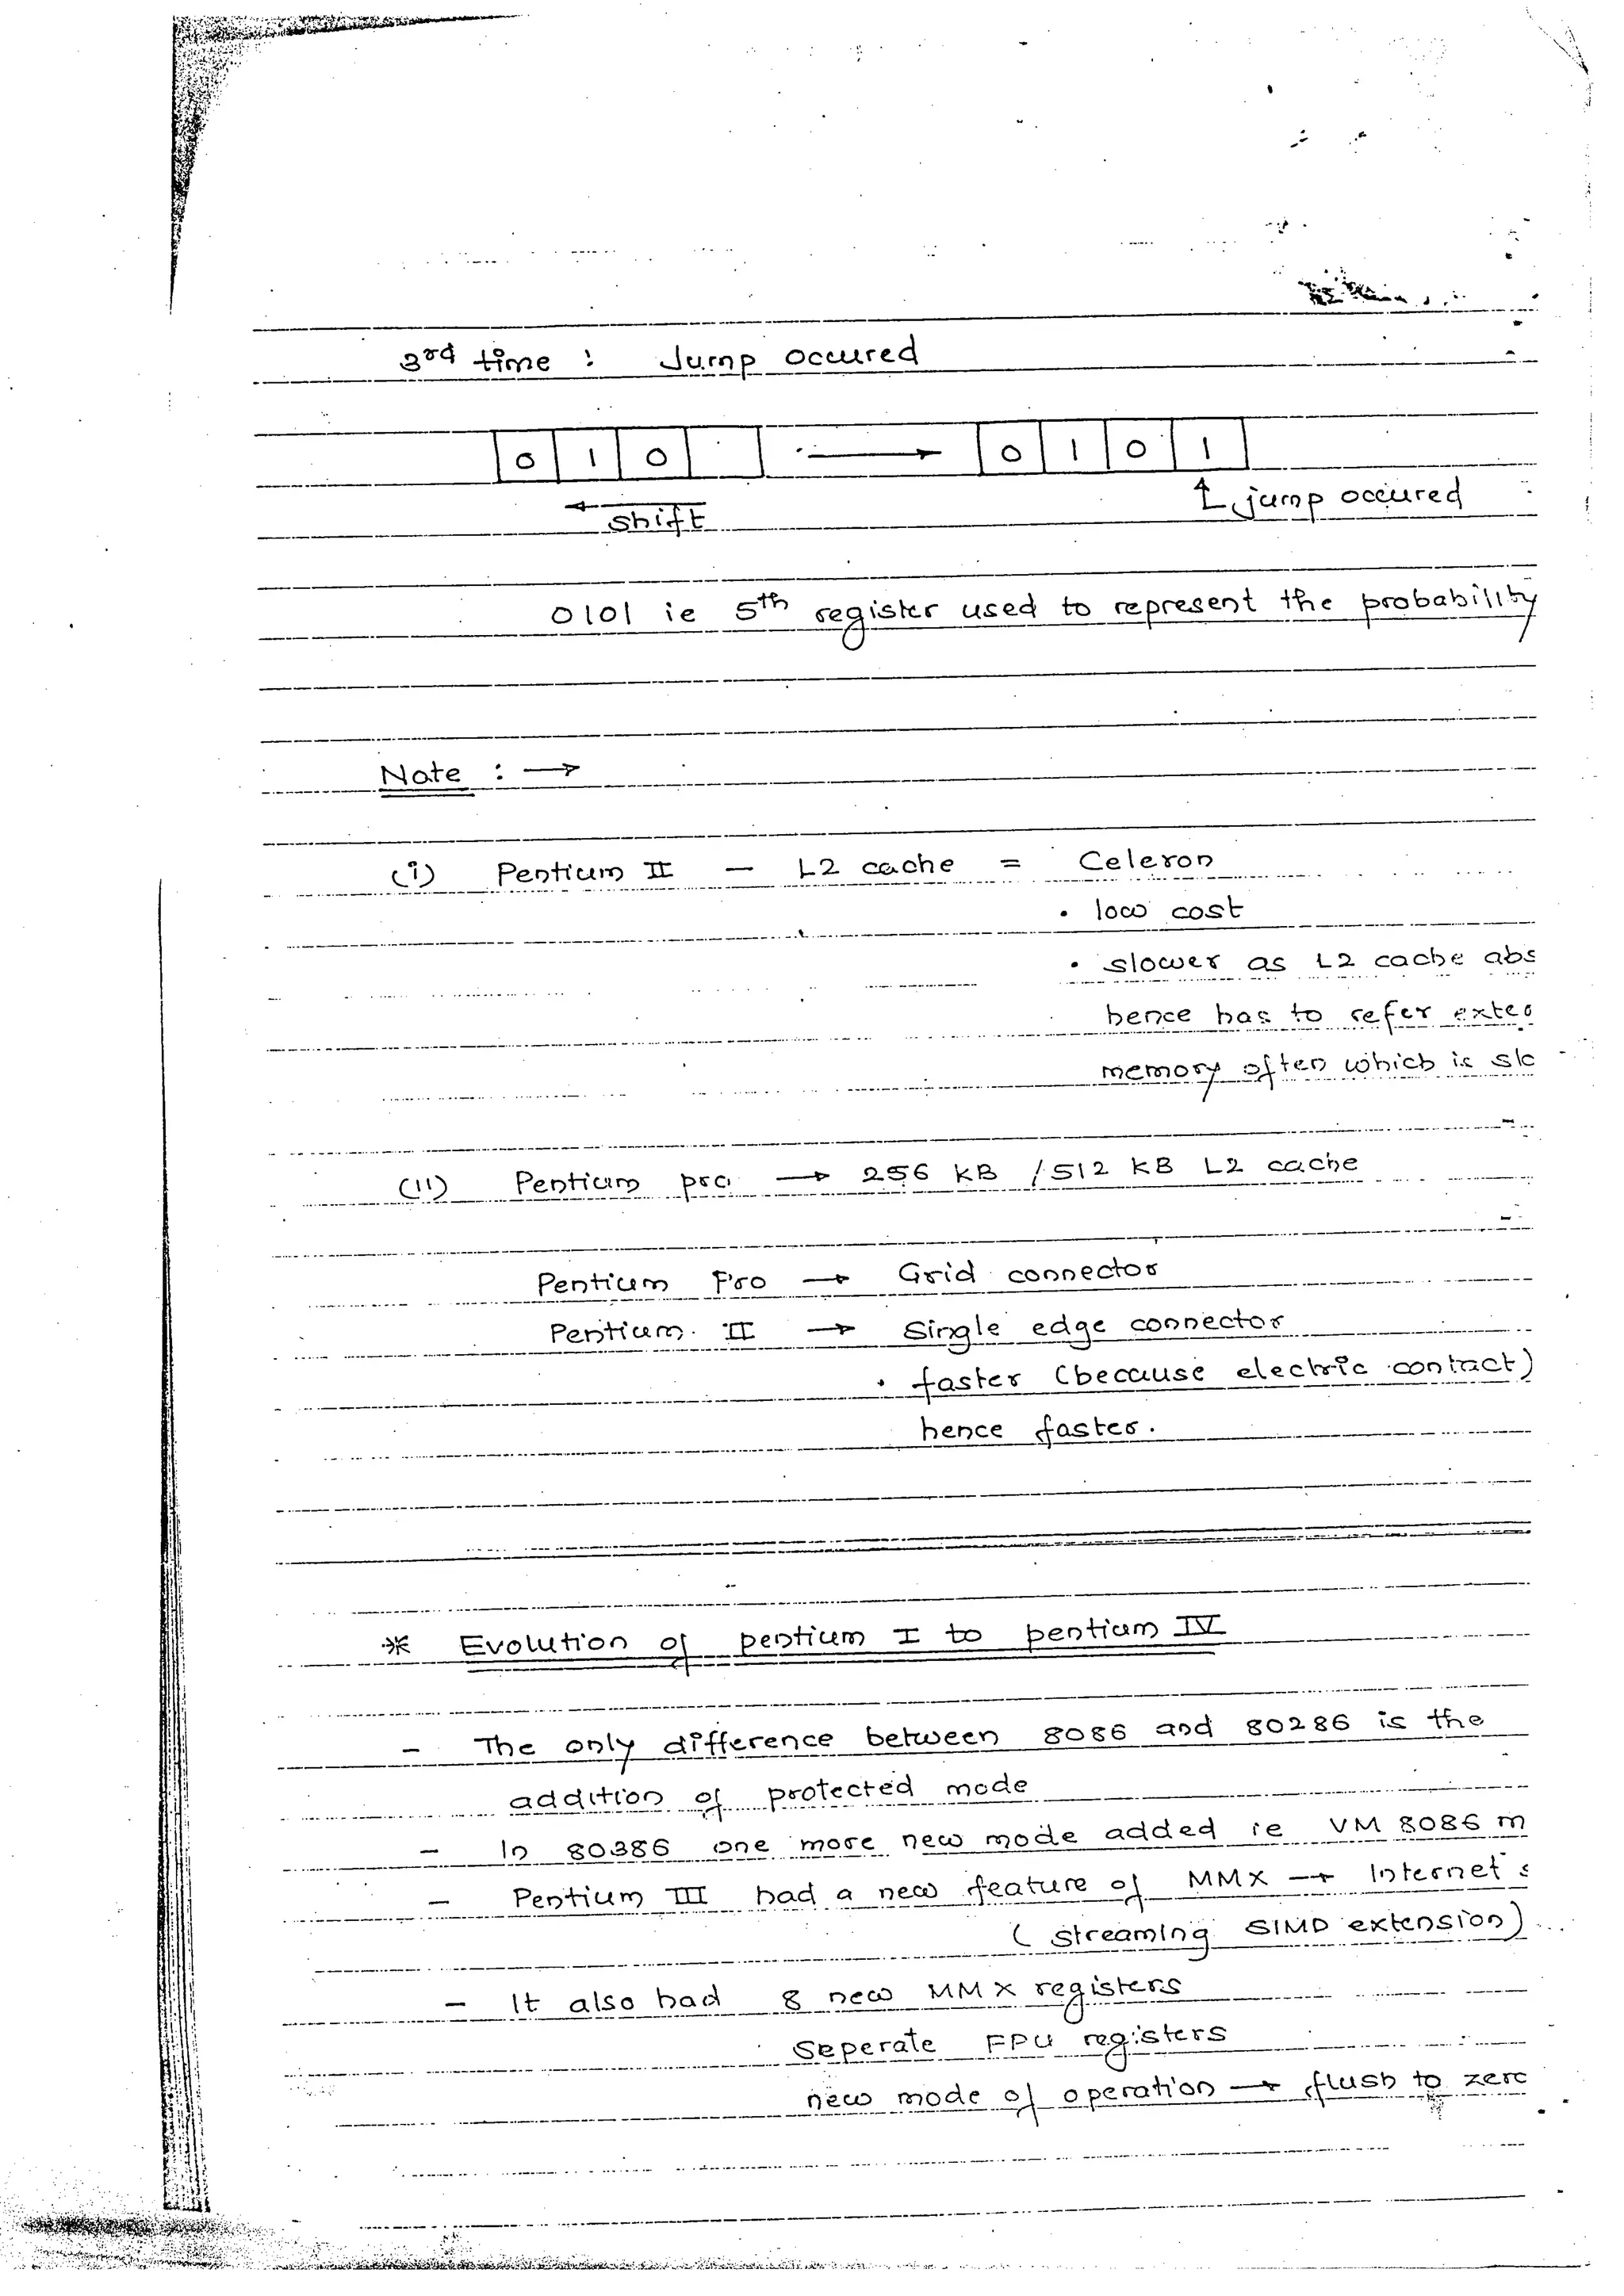 3rd time : Jump occured
0 1 0 → 0 1 0 1
shift jump occured
0101 ie 5th register used to represent the probability
Note : →
(i) Pentium II – L2 cache = Celeron
• low cost
• slower as L2 cache abs
hence has to refer exter
memory often which is slo
(ii) Pentium pro → 256 KB / 512 KB L2 cache
Pentium Pro → Grid connector
Pentium II → Single edge connector
• faster (because electric contact)
hence faster.
* Evolution of pentium I to pentium IV
- The only difference between 8086 and 80286 is the
addition of protected mode
- In 80386 one more new mode added ie VM 8086 m
- Pentium III had a new feature of MMX → Internet s
( streaming SIMD extension)
- It also had 8 new MMX registers
Seperate FPU registers
new mode of operation → flush to zero